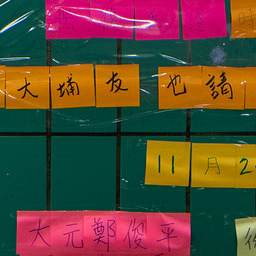 大埔友 也請
11月2
大元鄭俊平